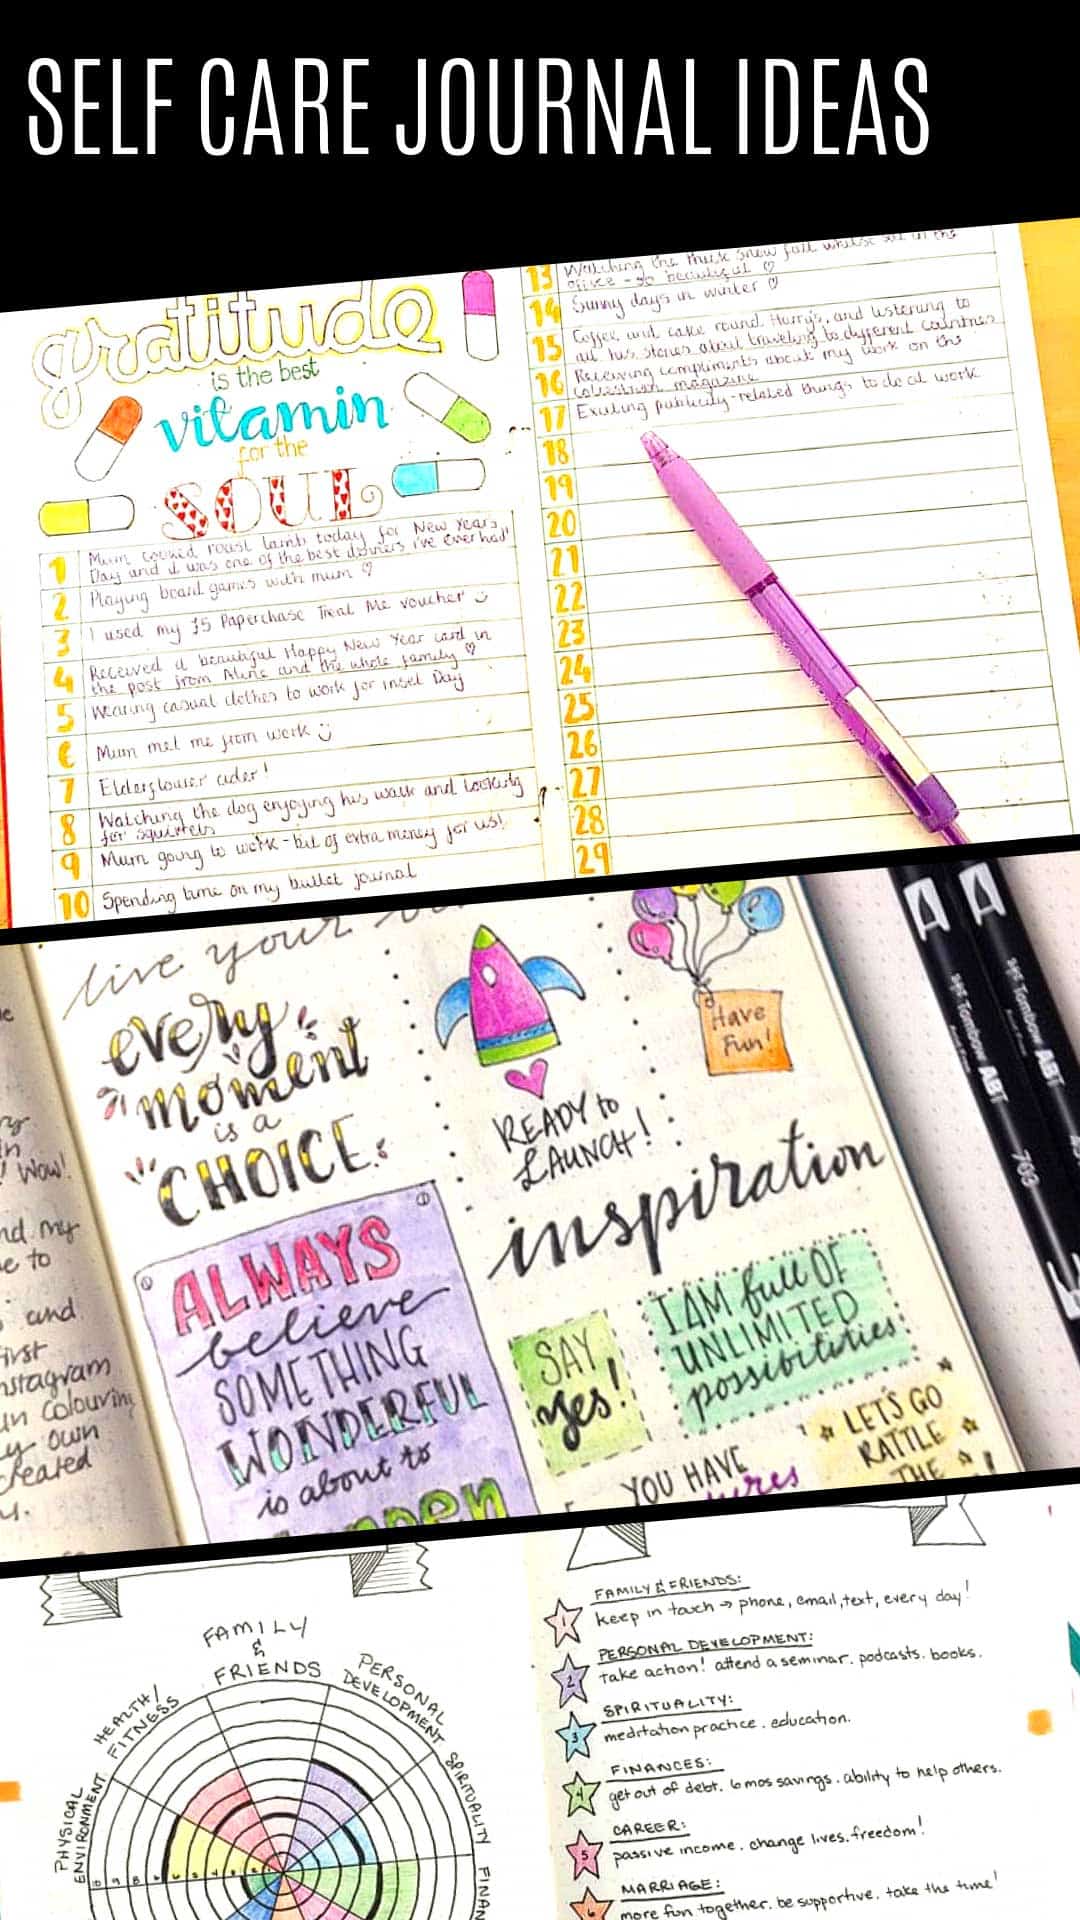 SELF CARE JOURNAL IDEAS
gratitude
is the best
vitamin
for the
SOUL
1 Mum cooked roast lamb today for New Years
Day and it was one of the best dinners i've ever had!
2 Playing board games with mum ♡
3 I used my £5 Paperchase Treat Me voucher
4 Received a beautiful Happy New Year card in
the post from Aline and the whole family ♡
5 Wearing casual clothes to work for inset Day
6 Mum met me from work
7 Elderflower cider!
8 Watching the dog enjoying his walk and looking
for squirrels
9 Mum going to work - bit of extra money for us!
10 Spending time on my bullet journal
13 Watching the thick snow fall whilst sat in the
office - so beautiful ♡
14 Sunny days in winter ♡
15 Coffee and cake round Harry's, and listening to
all his stories about traveling to different countries
16 Receiving compliments about my work on the
magazine
17 Exciting publicity-related things to do at work
18
19
20
21
22
23
24
25
26
27
28
29
live your
every
moment
is a
CHOICE
READY to
LAUNCH!
Have
Fun!
inspiration
ALWAYS
believe
SOMETHING
WONDERFUL
is about to
SAY
yes!
I AM full OF
UNLIMITED
possibilities
YOU HAVE
LET'S GO
RATTLE
THE
! Wow!
my
to
and
Instagram
colouring
own
created
Tombow ABT
Tombow ABT
703
FAMILY
&
FRIENDS
PERSONAL
DEVELOPMENT
HEALTH/
FITNESS
SPIRITUALITY
PHYSICAL
ENVIRONMENT
FINAN
1 FAMILY & FRIENDS:
keep in touch → phone, email, text, every day!
2 PERSONAL DEVELOPMENT:
take action! attend a seminar. podcasts. books.
3 SPIRITUALITY:
meditation practice. education.
4 FINANCES:
get out of debt. 6 mos savings. ability to help others.
5 CAREER:
passive income. change lives. freedom!
6 MARRIAGE:
more fun together. be supportive. take the time!